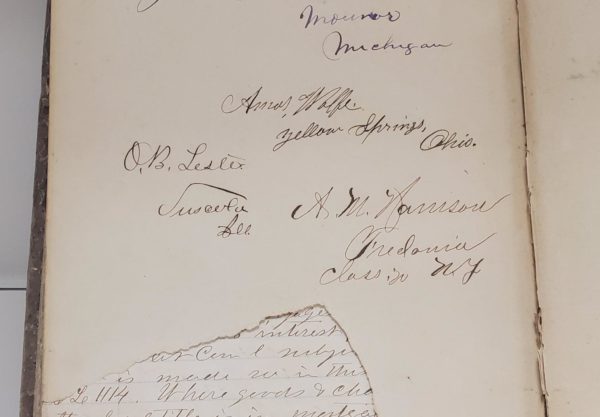 Monroe
Michigan
Amos Wolfe.
Yellow Springs,
Ohio.
O. B. Lester
Tuscola
Ill
A. M. Harrison
Fredonia
Class '70 N.Y
interest
Cent subje
is made see in this
Where goods & cha